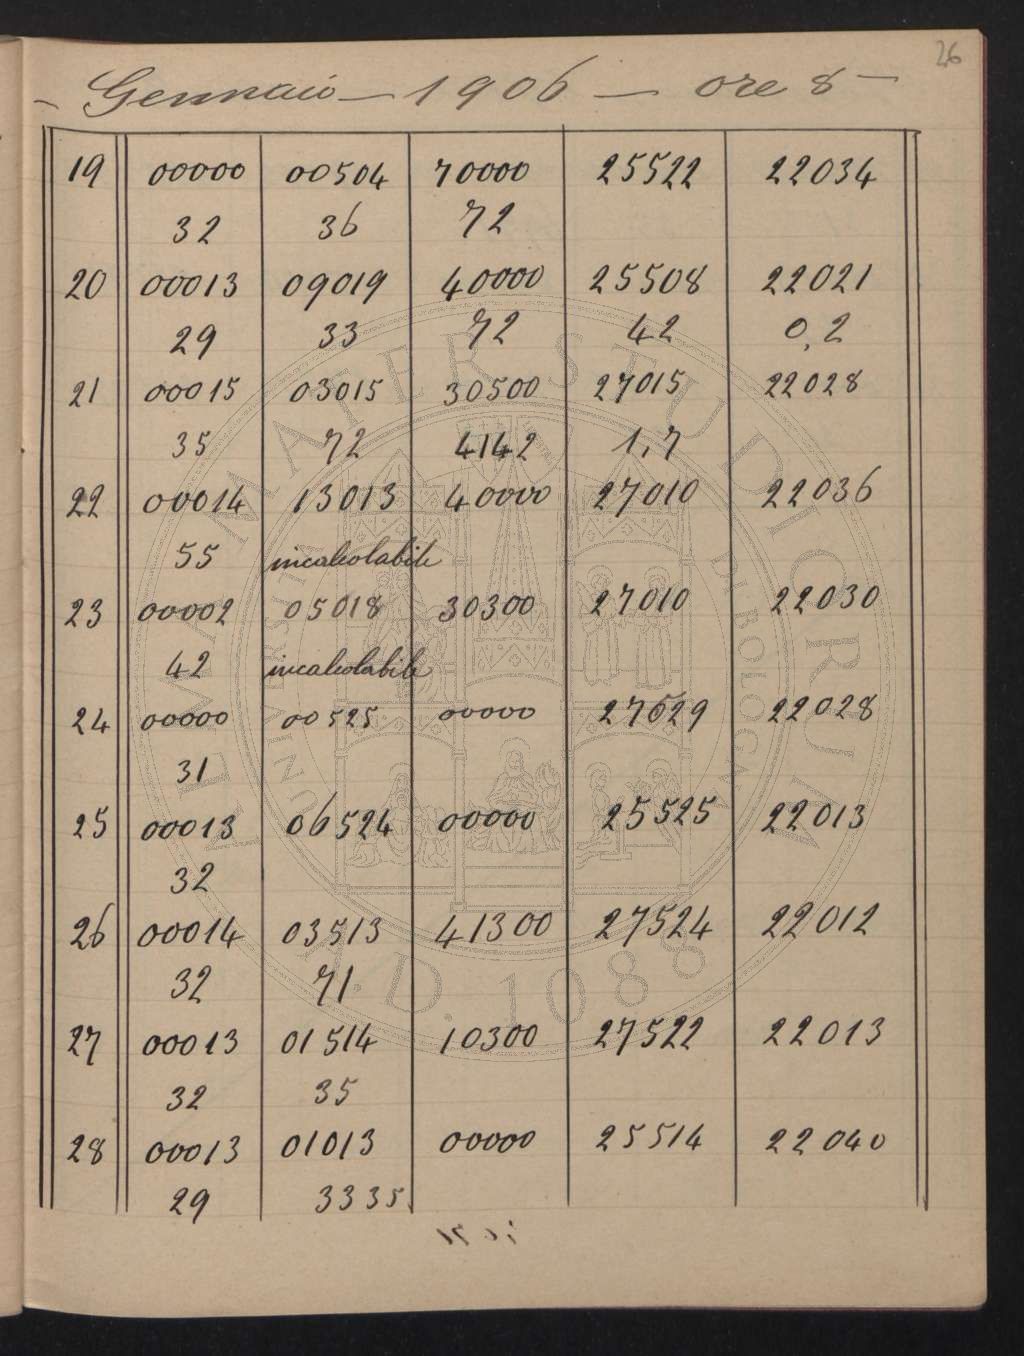 26
Gennaio — 1906 — ore 8 —
19 00000 00504 70000 25522 22034
32 36 72
20 00013 09019 40000 25508 22021
29 33 72 42 0,2
21 00015 03015 30500 27015 22028
35 72 4142 1,7
22 00014 13013 40000 27010 22036
55 incalcolabile
23 00002 05018 30300 27010 22030
42 incalcolabile
24 00000 00525 00000 27629 22028
31
25 00013 06524 00000 25525 22013
32
26 00014 03513 41300 27524 22012
32 71
27 00013 01514 10300 27522 22013
32 35
28 00013 01013 00000 25514 22040
29 3335
ALMA MATER STUDIORUM
UNIVERSITÀ DI BOLOGNA
A.D. 1088